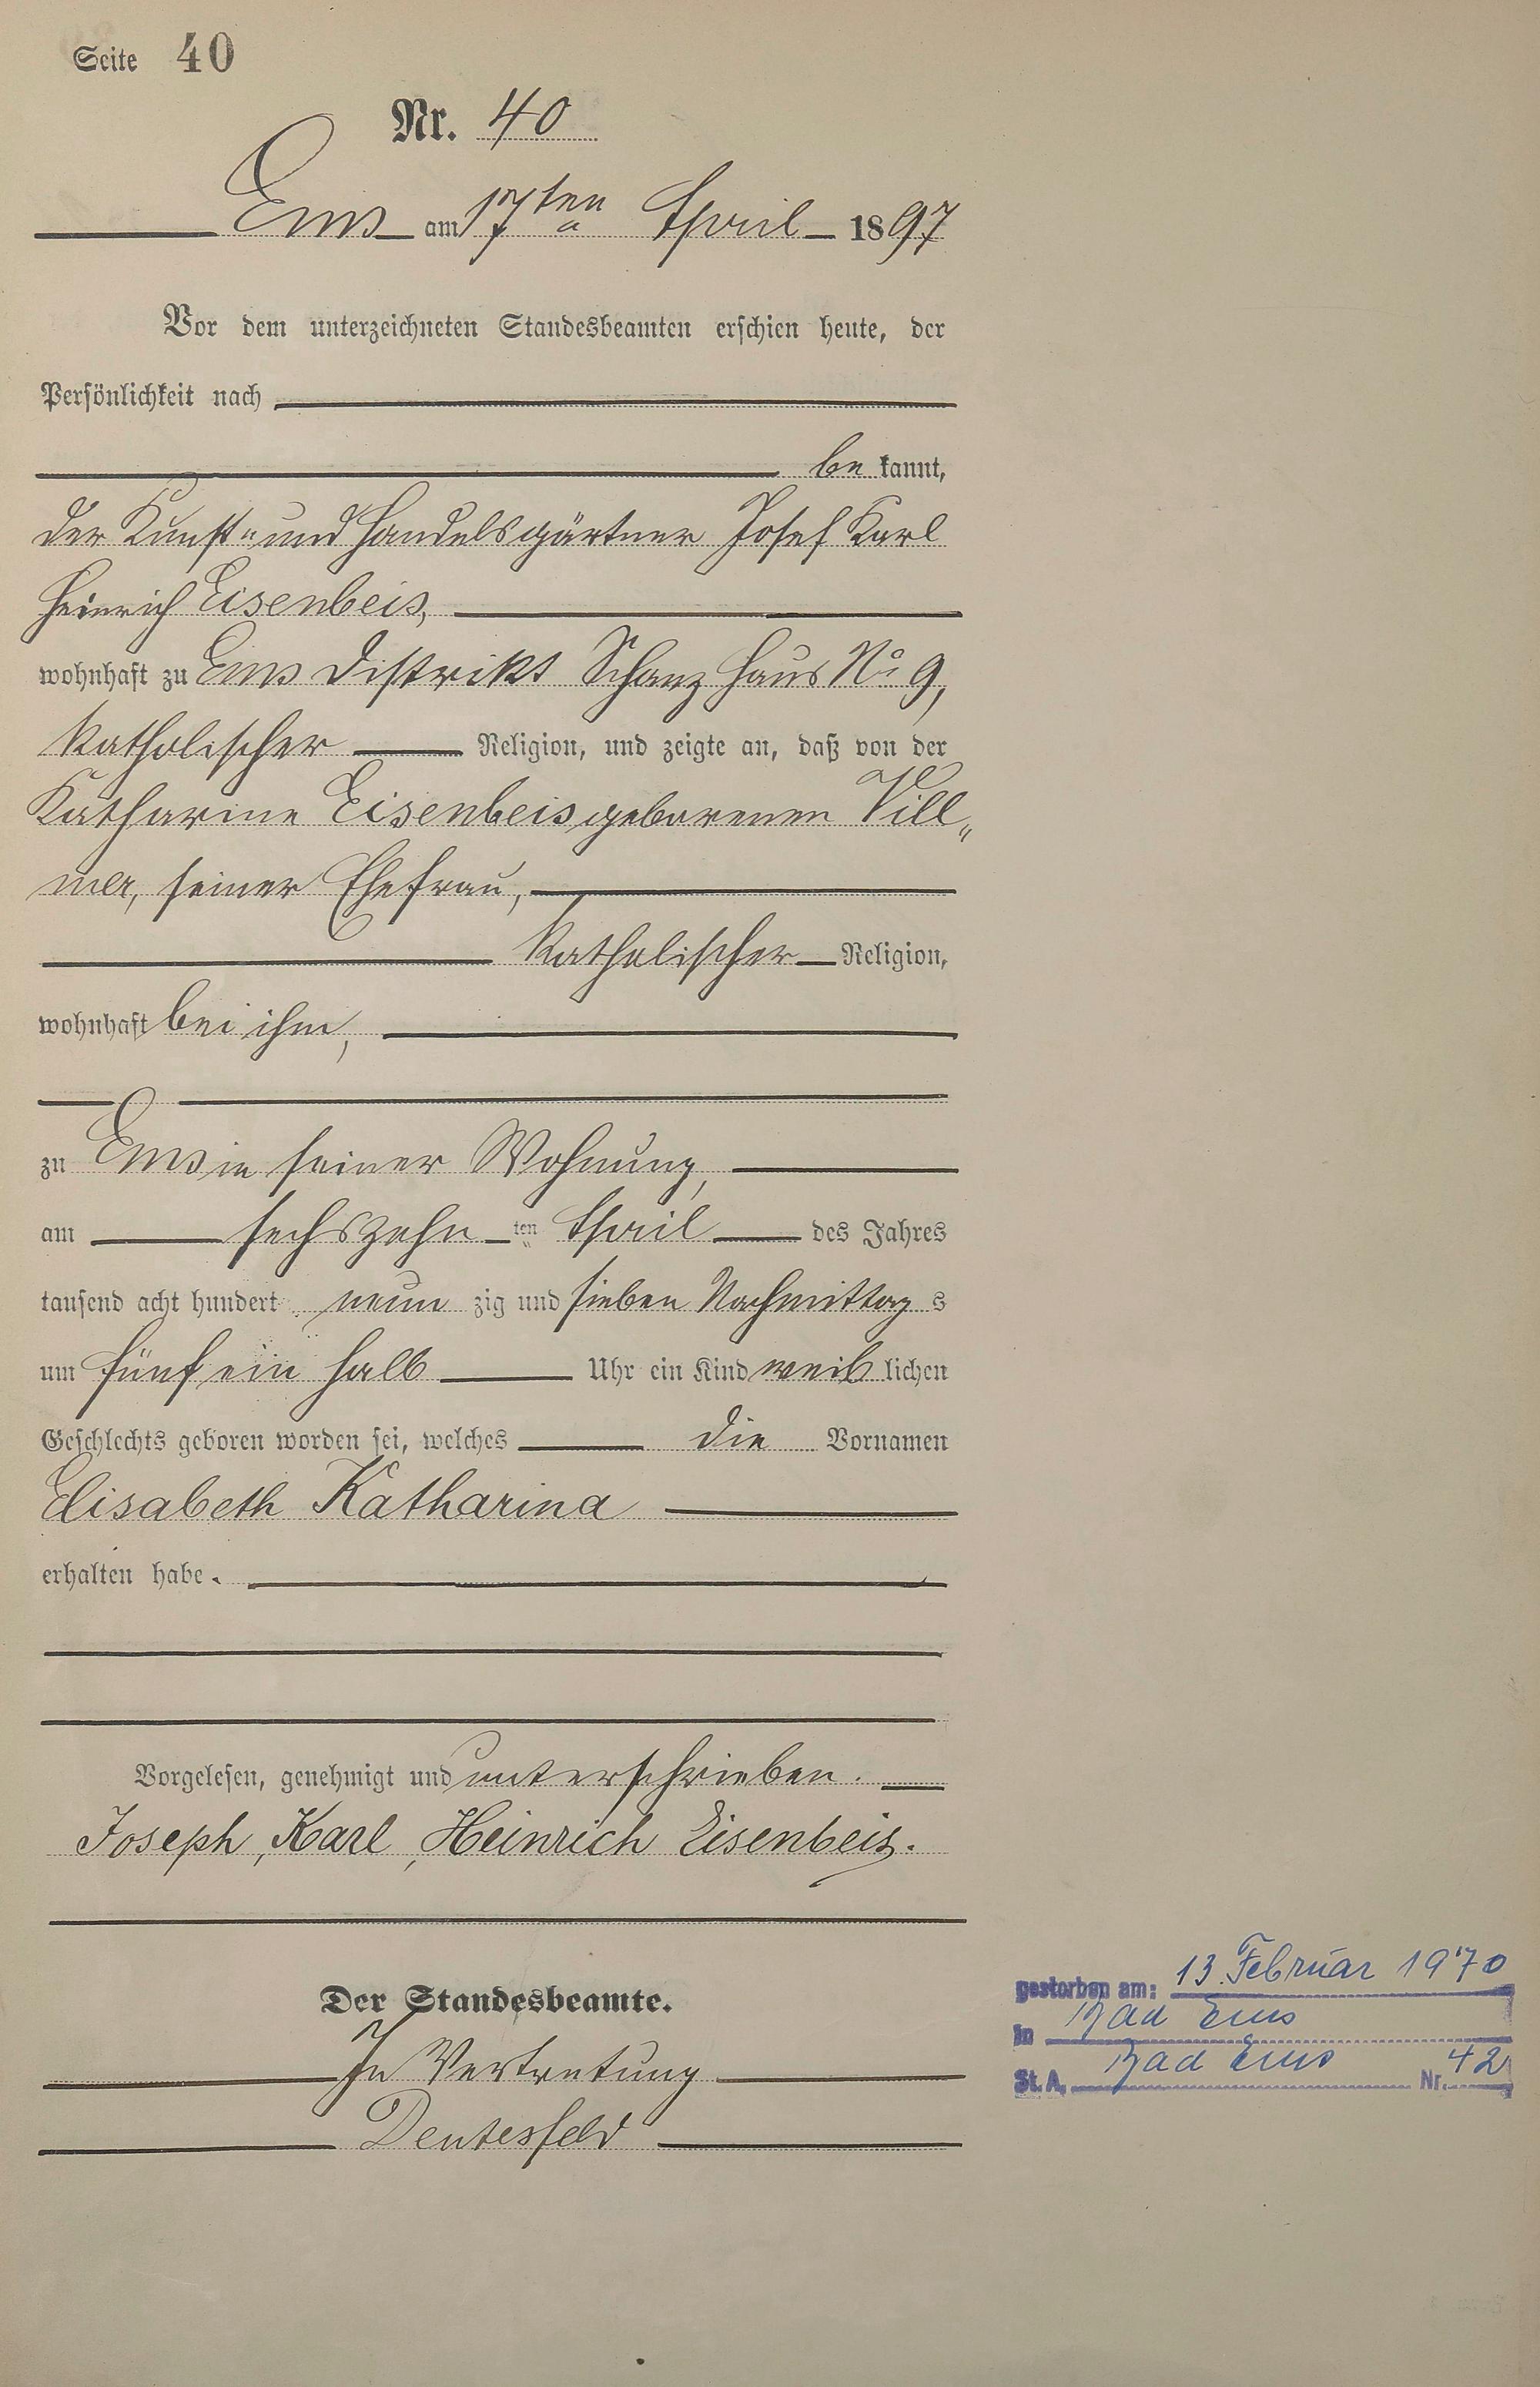 Seite 40
Nr. 40
Ems am 17ten April 1897
Vor dem unterzeichneten Standesbeamten erschien heute, der
Persönlichkeit nach
be kannt,
der Kunst- und Handelsgärtner Josef Karl
Heinrich Eisenbeis,
wohnhaft zu Ems Distrikt Schanz Haus No 9,
katholischer Religion, und zeigte an, daß von der
Katharine Eisenbeis geborenen Vill-
mer, seiner Ehefrau,
katholischer Religion,
wohnhaft bei ihm,
zu Ems in seiner Wohnung,
am sechszehn ten April des Jahres
tausend acht hundert neun zig und sieben Nachmittag s
um fünf ein halb Uhr ein Kind weib lichen
Geschlechts geboren worden sei, welches die Vornamen
Elisabeth Katharina
erhalten habe.
Vorgelesen, genehmigt und unterschrieben.
Joseph, Karl, Heinrich Eisenbeis.
Der Standesbeamte.
In Vertretung
Deutesfeld
gestorben am: 13. Februar 1970
in Bad Ems
St. A. Bad Ems Nr. 42